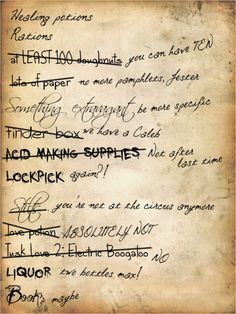 Healing potions
Rations
at LEAST 100 doughnuts you can have TEN
lots of paper no more pamphlets, Jester
Something extravagant be more specific
Tinder box we have a Caleb
ACID MAKING SUPPLIES Not after
last time
LOCKPICK again?!
Stilts you're not at the circus anymore
love potion ABSOLUTELY NOT
Tusk Love 2: Electric Boogaloo NO
LIQUOR two bottles, max!
Books maybe